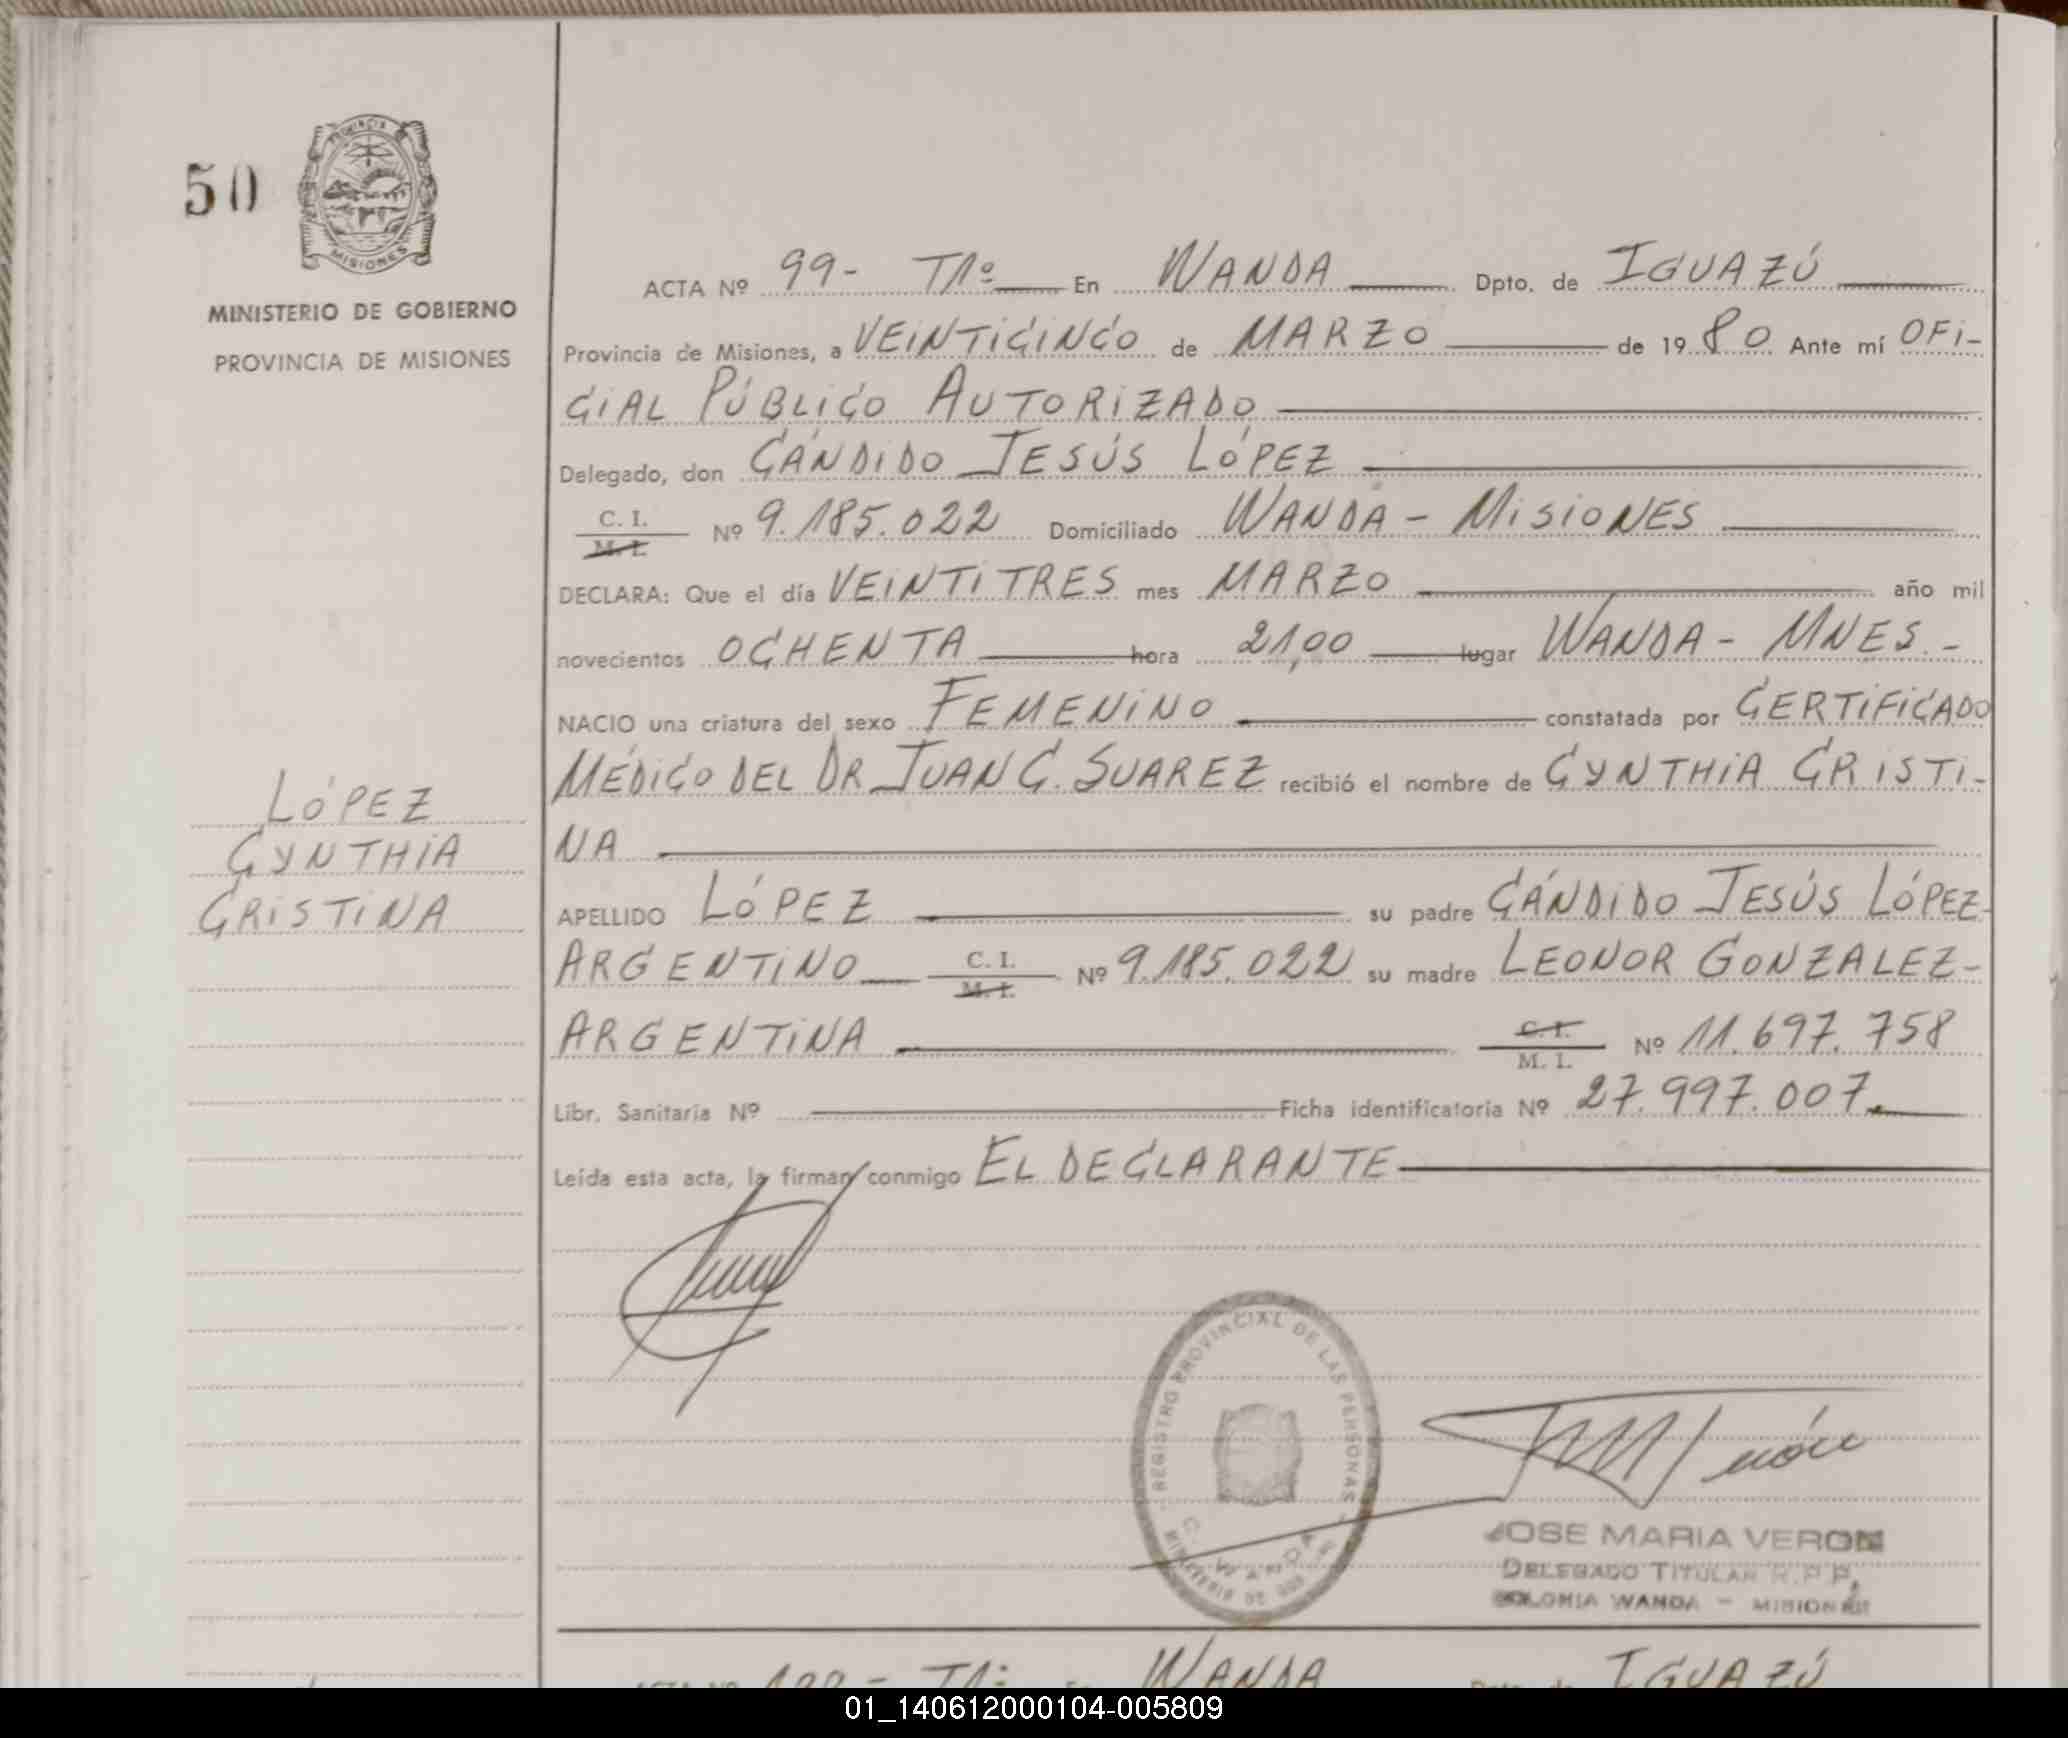 50
PROVINCIA
MISIONES
MINISTERIO DE GOBIERNO
PROVINCIA DE MISIONES
ACTA Nº 99- T1º En WANDA Dpto. de IGUAZÚ
Provincia de Misiones, a VEINTICINCO de MARZO de 1980 Ante mí OFI-
CIAL PÚBLICO AUTORIZADO
Delegado, don CÁNDIDO JESÚS LÓPEZ
C. I.
M. I. Nº 9.185.022 Domiciliado WANDA - MISIONES
DECLARA: Que el día VEINTITRES mes MARZO año mil
novecientos OCHENTA hora 21,00 lugar WANDA - MNES. -
NACIO una criatura del sexo FEMENINO constatada por CERTIFICADO
MÉDICO DEL DR JUAN C. SUAREZ recibió el nombre de CYNTHIA CRISTI-
NA
LÓPEZ
CYNTHIA
CRISTINA
APELLIDO LÓPEZ su padre CÁNDIDO JESÚS LÓPEZ-
ARGENTINO C. I.
M. I. Nº 9.185.022 su madre LEONOR GONZALEZ-
ARGENTINA C. I.
M. I. Nº 11.697.758
Libr. Sanitaria Nº Ficha identificatoria Nº 27.997.007.
Leída esta acta, la firman conmigo EL DECLARANTE
REGISTRO PROVINCIAL DE LAS PERSONAS
MINISTERIO DE
C. WANDA
JOSE MARIA VERON
DELEGADO TITULAR R.P.P.
COLONIA WANDA - MISIONES
ACTA Nº 100 - T1º En WANDA Dpto. de IGUAZÚ
01_140612000104-005809